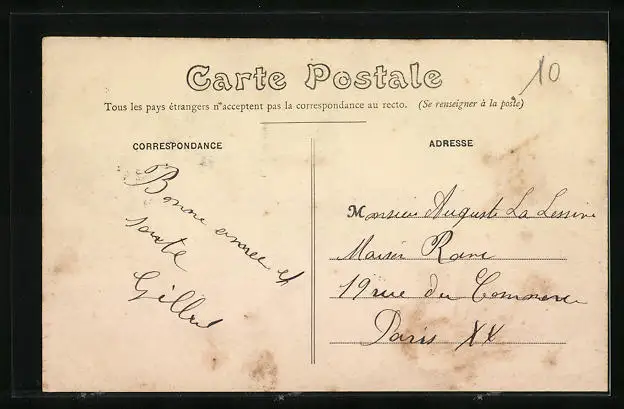 10
Carte Postale
Tous les pays étrangers n'acceptent pas la correspondance au recto. (Se renseigner à la poste)
CORRESPONDANCE
Bonne année et
santé
ADRESSE
Monsieur Auguste La
Maison
19 rue du Commerce
Paris XX